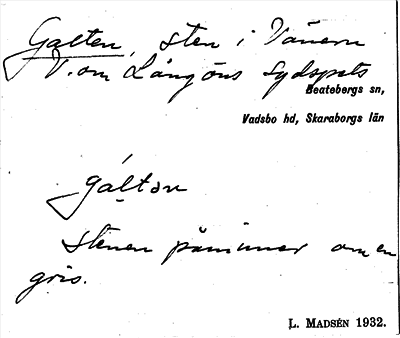 Galten, sten i Vänern
V. om Långöns sydspets
Beatebergs sn,
Vadsbo hd, Skaraborgs län
gáltən
stenen påminner om en
gris.
L. MADSÉN 1932.